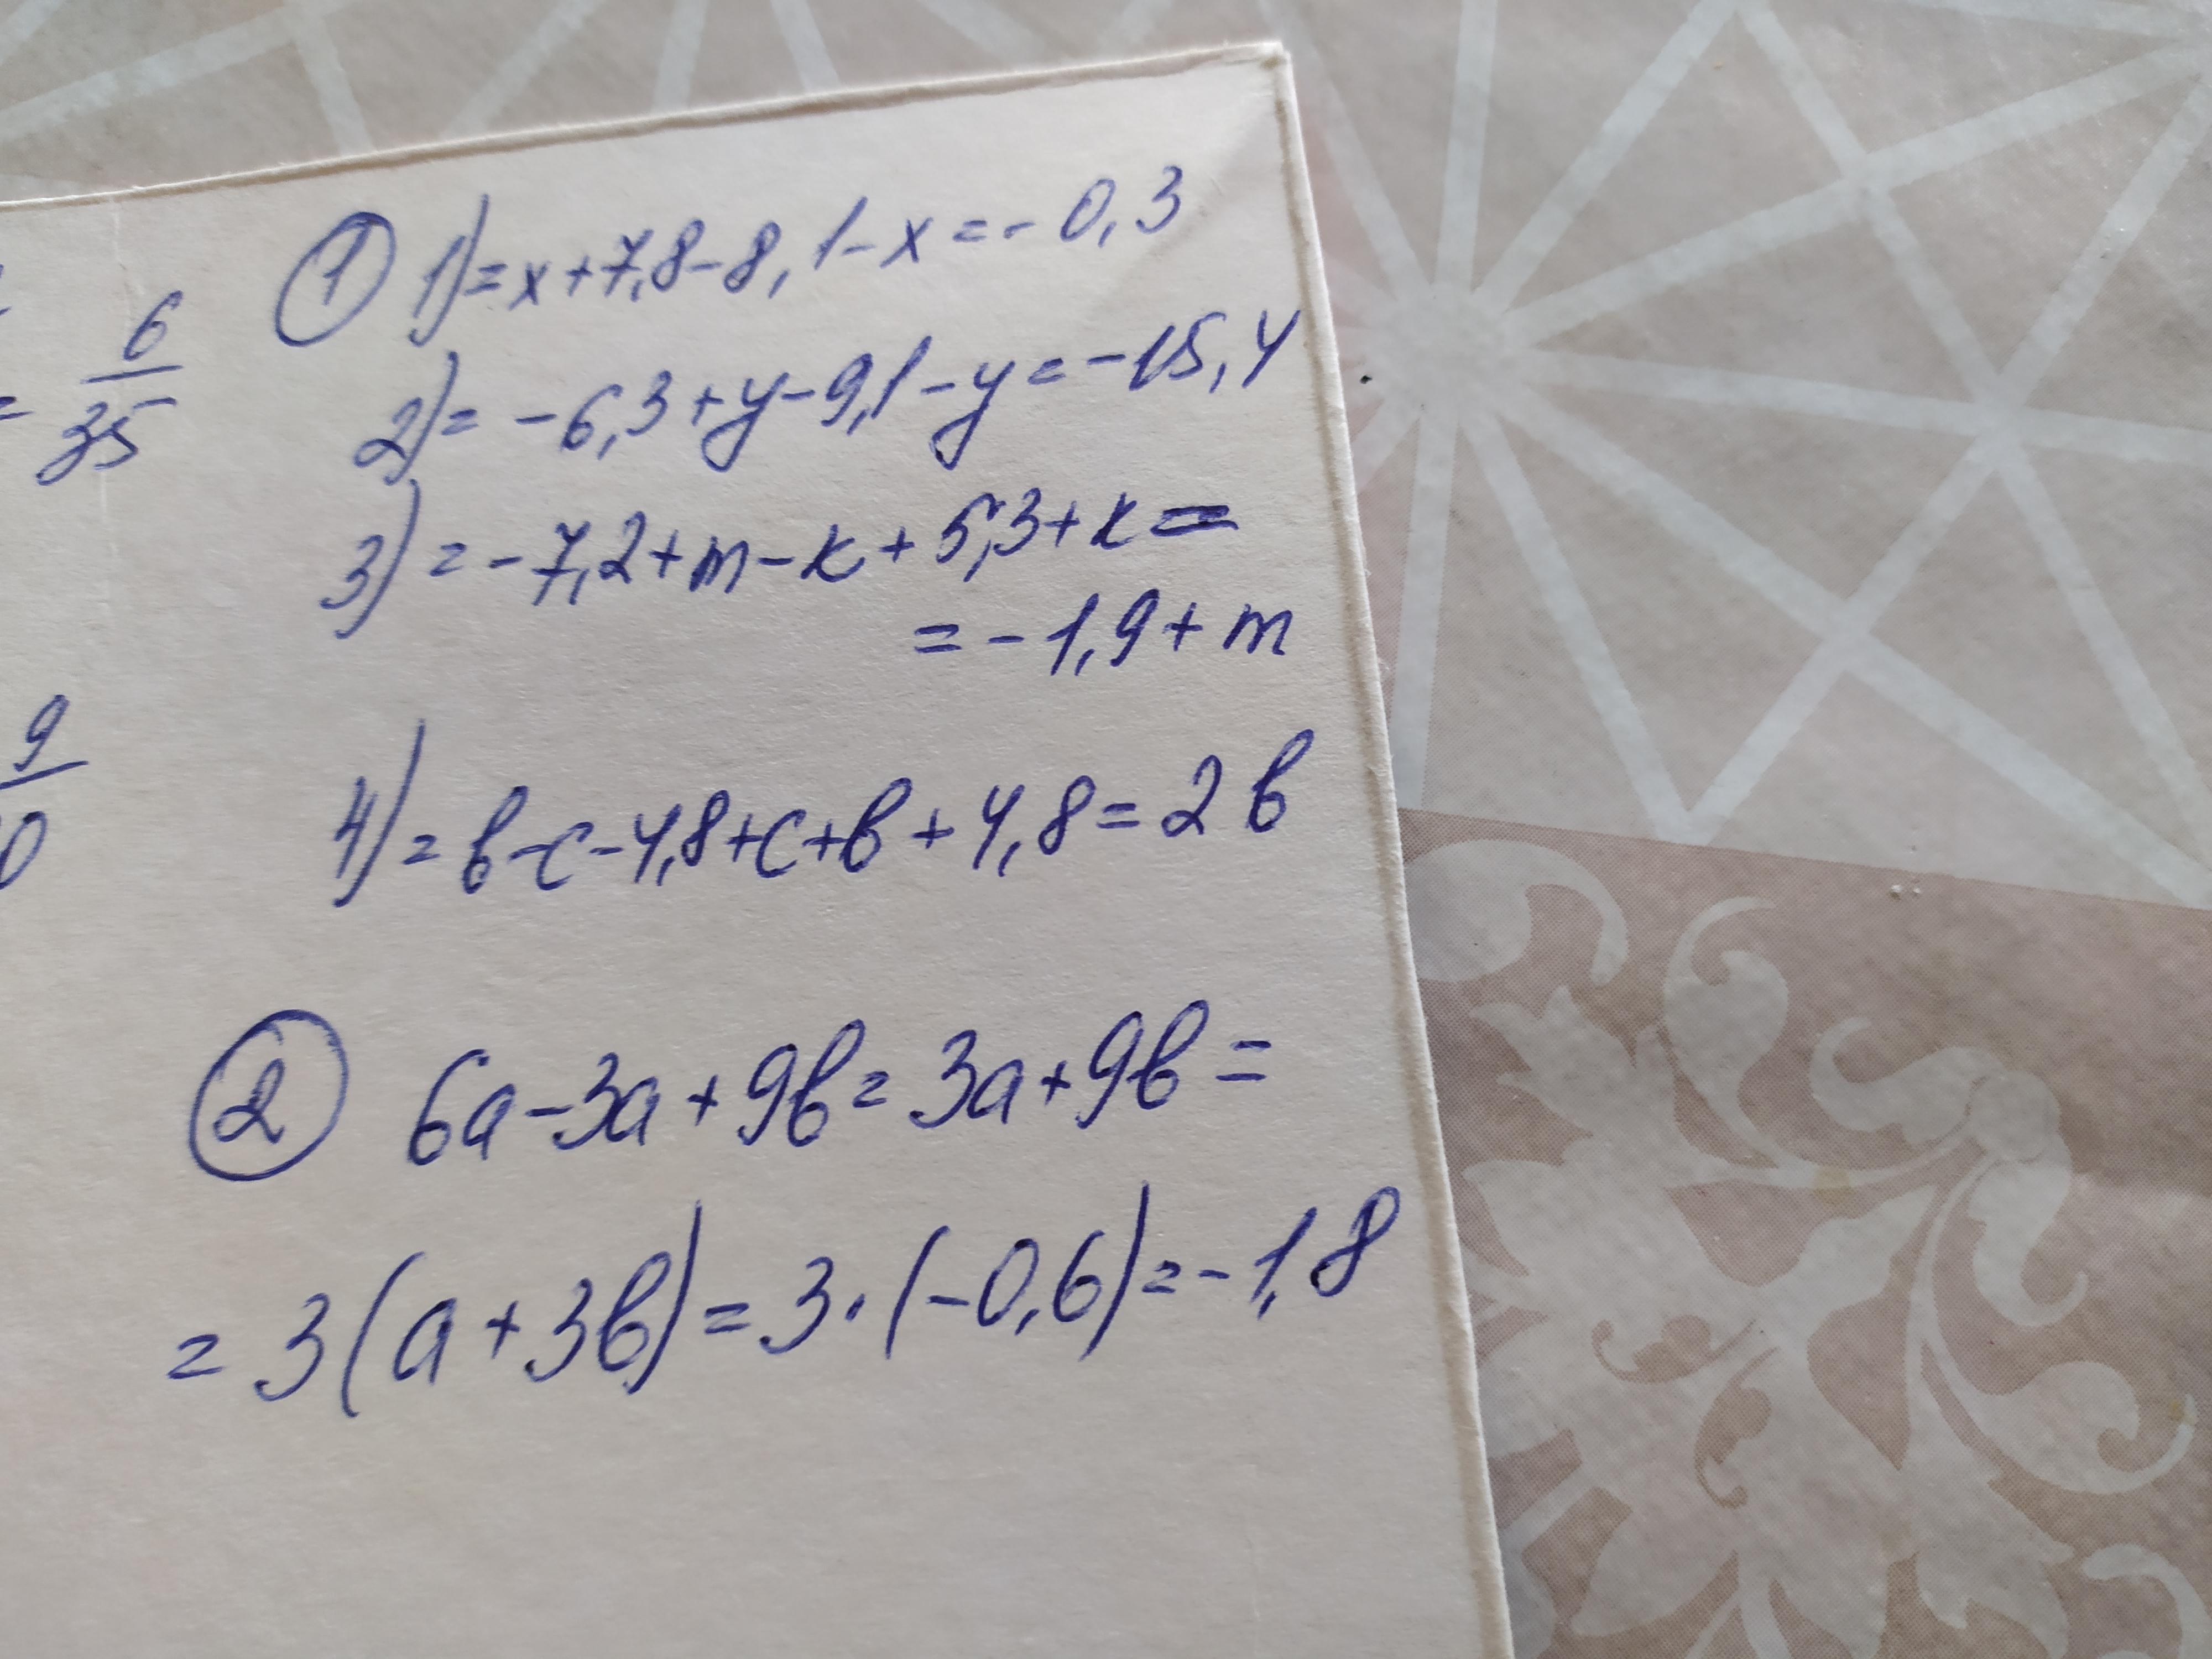 ① 1) = x + 7,8 - 8,1 - x = - 0,3
2) = - 6,3 + y - 9,1 - y = - 15,4
3) = - 7,2 + m - к + 5,3 + к =
= - 1,9 + m
4) = в - с - 4,8 + с + в + 4,8 = 2в
② 6a - 3a + 9в = 3a + 9в =
= 3(a + 3в) = 3 · (-0,6) = - 1,8
= 6/35
9
0